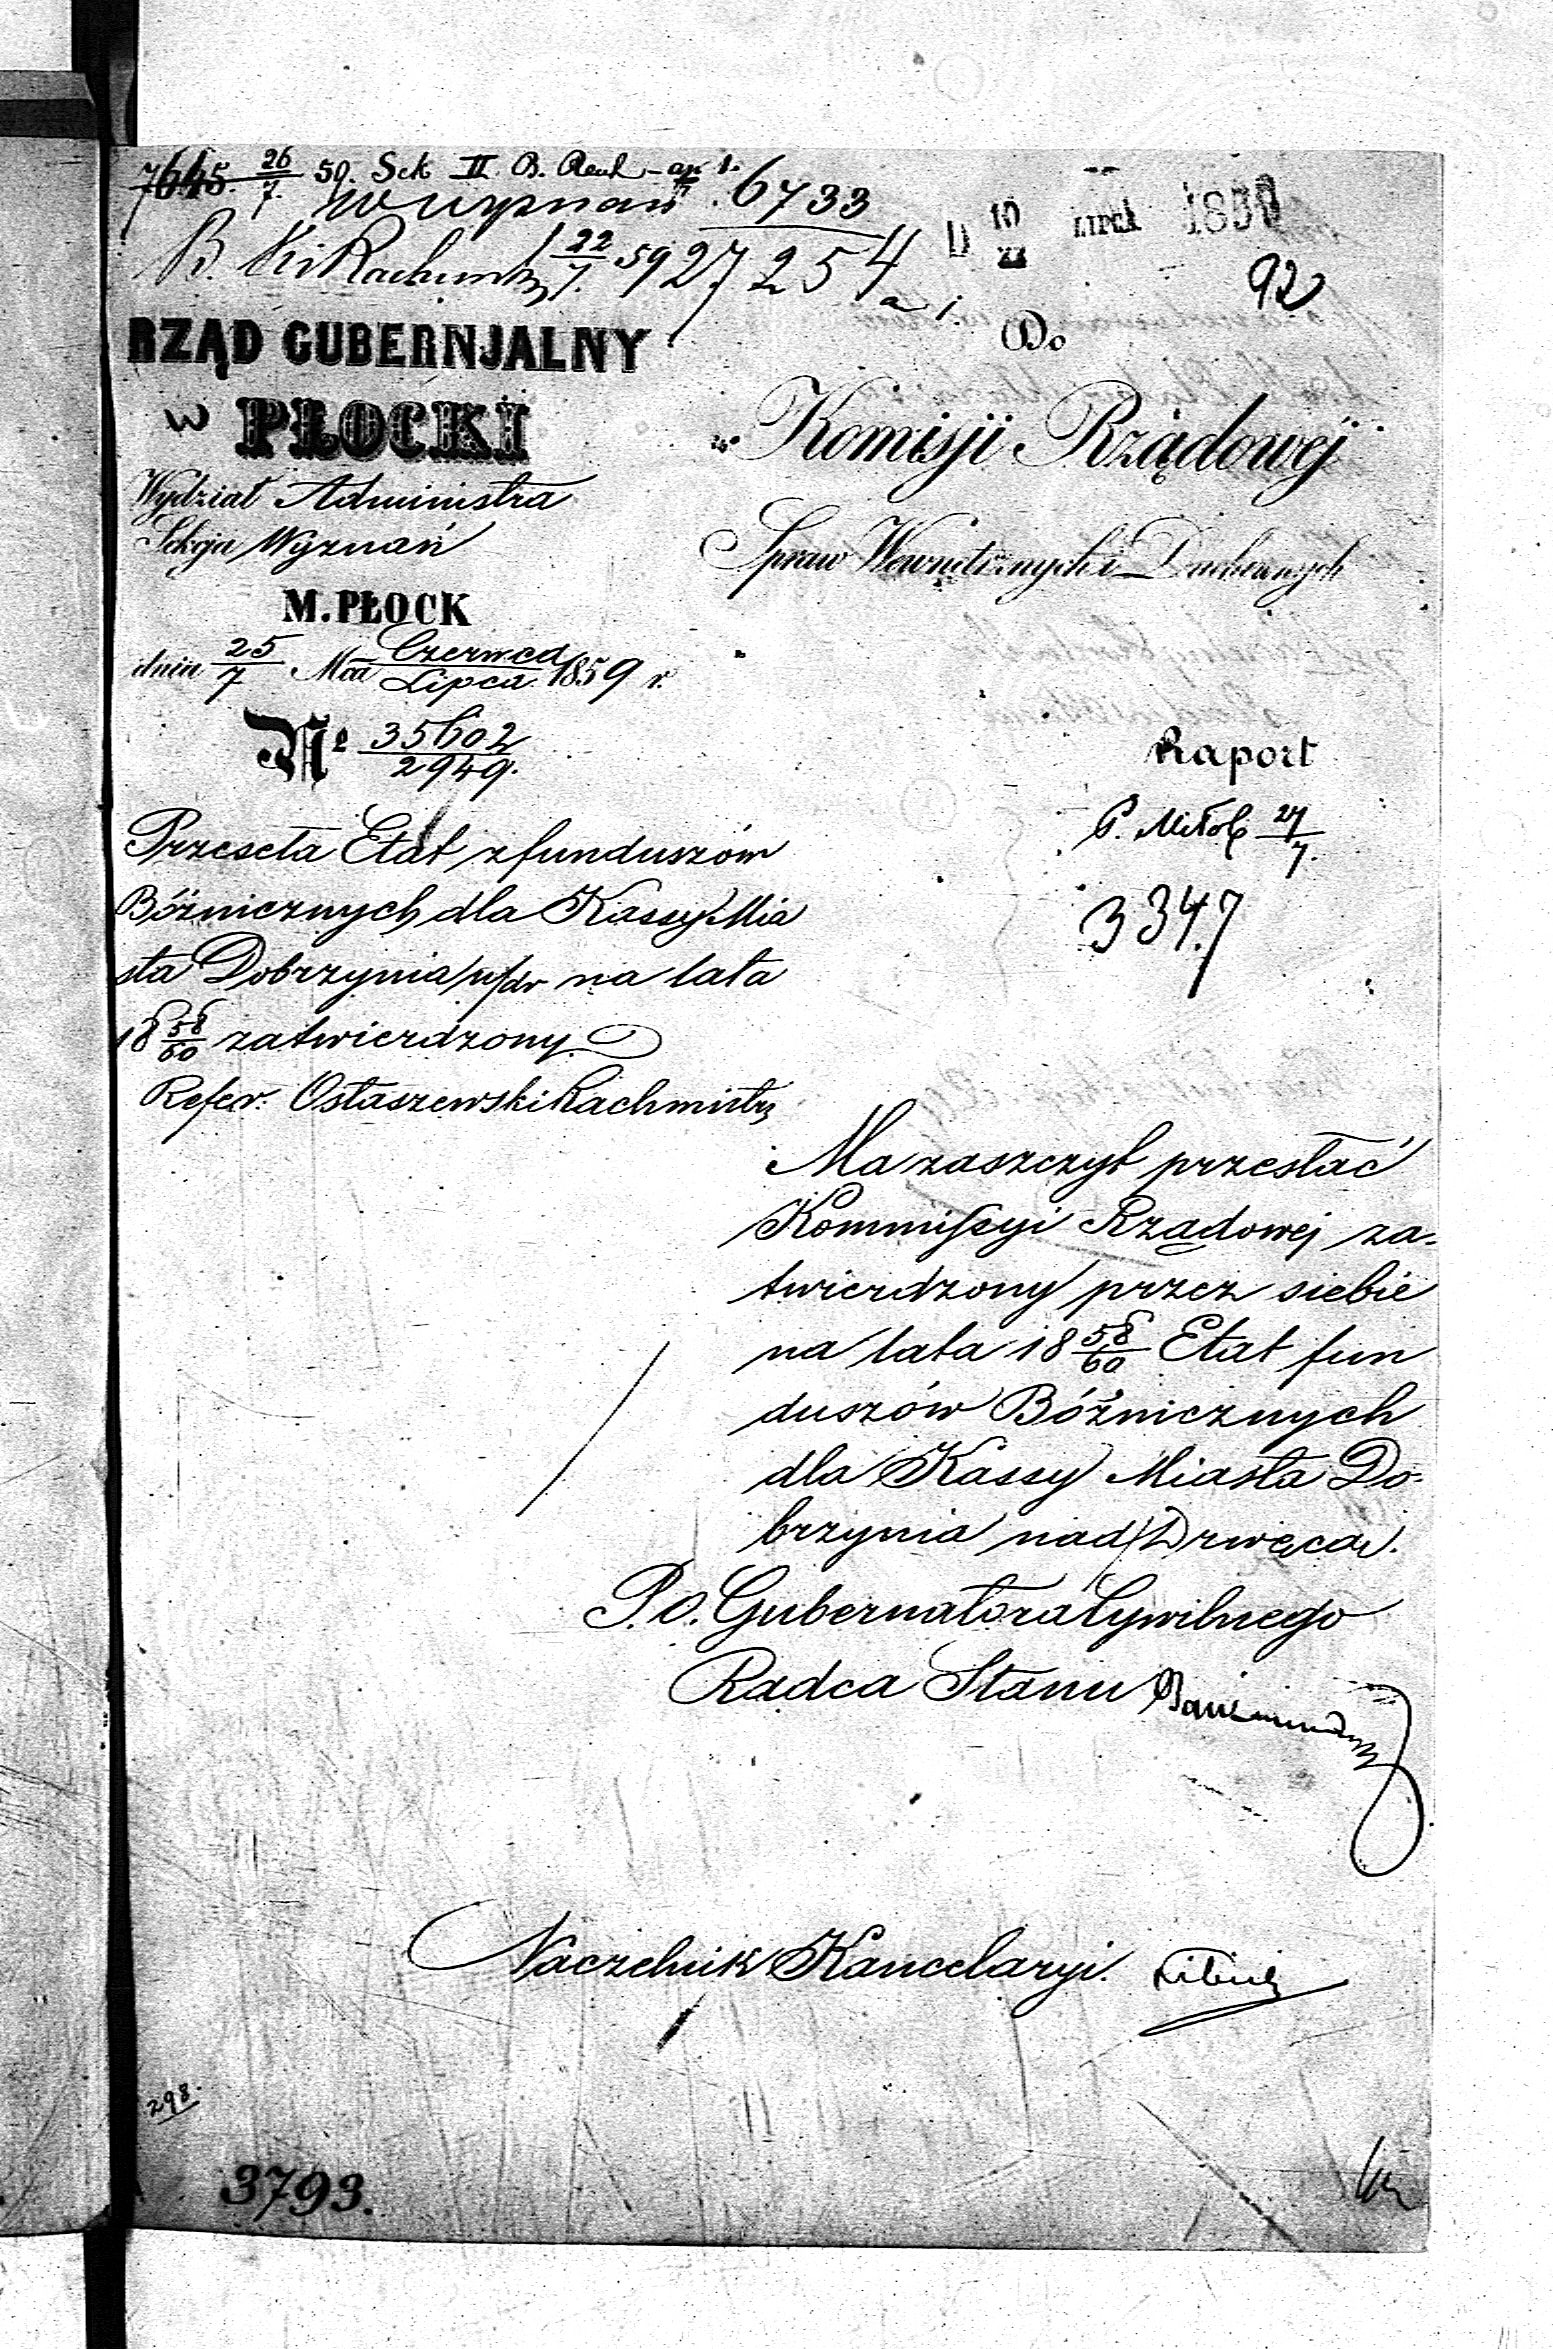 7645. 26/7. 59. Sek II. B.
Wyznań 6733
B. 22/7. 59 27254
D 10/22 LIPCA 1859
92
RZĄD GUBERNJALNY
w PŁOCKI
Wydział Administra
Sekcja Wyznań
M. PŁOCK
dnia 25/7 Mca Czerwca/Lipca 1859 r.
Nº 35602/2949.
Przeseła Etat z funduszów
Bóżnicznych dla Kassy Mia
sta Dobrzynia n/dr na lata
18 58/60 zatwierdzony.
Refer. Ostaszewski Rachmistrz
Do
Komisji Rządowéj
Spraw Wewnętrznych i Duchownych
Raport
27/7.
3347
Ma zaszczyt przesłać
Kommissyi Rządowej za-
twierdzony przez siebie
na lata 18 58/60 Etat fun
duszów Bóżnicznych
dla Kassy Miasta Do-
brzynia nad Drwęcą.
P.o. Gubernatora Cywilnego
Radca Stanu
Naczelnik Kancelaryi.
298.
3793.